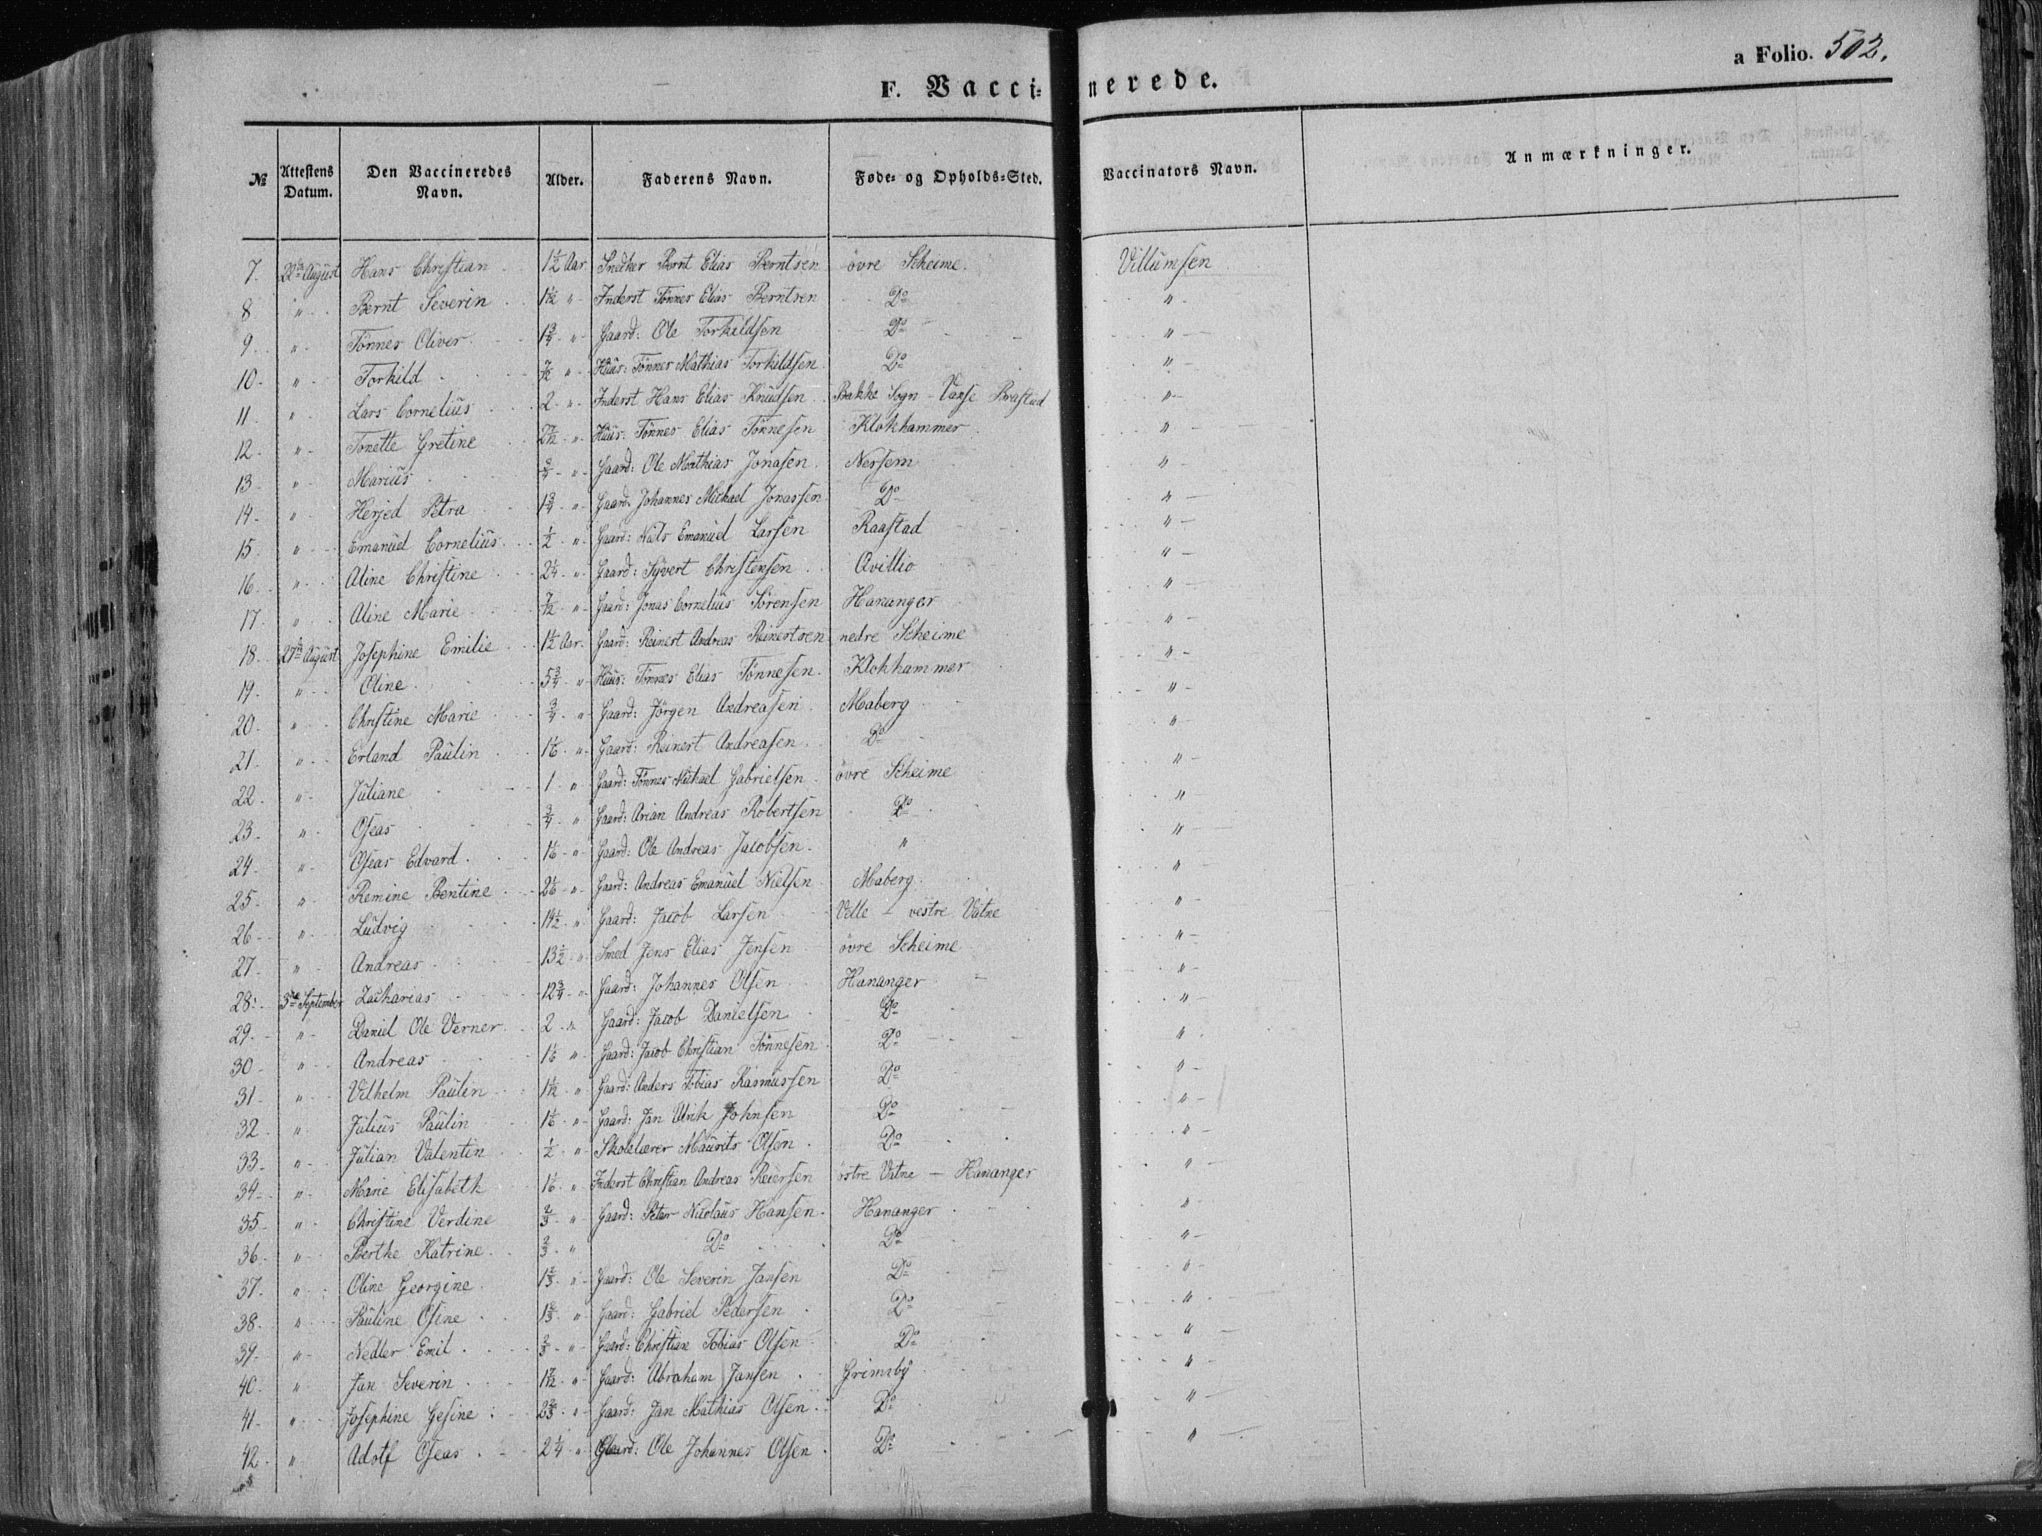 a Folio. 502.
F. Vaccinerede.
№ Attestens Datum. Den Vaccineredes Navn. Alder. Faderens Navn. Føde- og Opholds-Sted. Vaccinators Navn. Anmærkninger.
7. 22de August Hans Christian 1½ Aar Snedker Bernt Elias Berntsen övre Scheime. Villumsen
8 " Bernt Severin " Inderst Tönnes Elias Berntsen Do "
9. " Tönnes Oliver. 1¾ " Gaard: Ole Torkildsen Do "
10. " Torkild " Huus: Tönnes Mathias Torkildsen Do "
11 " Lars Cornelius 2 " Inderst Hans Elias Knudsen Bakke Sogn - Vanse Brastad "
12. " Tonette Gretine " Huus: Tönnes Elias Tönnesen Klokhammer "
13. " Marius ¾ " Gaard: Ole Mathias Jonasen. Nessem "
14. " Herjed Petra 1¾ " Gaard. Johannes Michael Jonassen Do "
15. " Emanuel Cornelius ½ " Gaard: Niels Emanuel Larsen Raastad "
16. " Aline Christine 2¼ " Gaard: Syvert Christensen Qvillio "
17. " Aline Marie 7/12 " Gaard: Jonas Cornelius Sörensen Hananger "
18. 27de August Josephine Emilie 1½ Aar. Gaard: Reinert Andreas Reinertsen nedre Scheime "
19. " Oline. 5¾ " Huus: Tönnes Elias Tönnesen Klokhammer "
20. " Christine Marie ¾ " Gaard: Jörgen Andreasen Maberg "
21. " Erland Paulin 1⅙ " Gaard: Reinert Andreasen Do "
22. " Juliane 1 " Gaard: Tönnes Michael Gabrielsen övre Scheime "
23. " Oseas ¾ " Gaard: Arian Andreas Robertsen Do "
24. " Oseas Edvard. 1⅙ " Gaard: Ole Andreas Jacobsen. " "
25. " Remine Bentine 2⅙ " Gaard: Andreas Emanuel Nielsen Maberg. "
26. " Ludvig " Gaard: Jacob Larsen Velle - vestre Vatne "
27. " Andreas 13½ " Smed Jens Elias Jensen övre Scheime "
28. 3de September Zacharias 12¾ " Gaard: Johannes Olsen Hananger "
29. " Daniel Ole Verner. 2 " Gaard: Jacob Danielsen Do "
30. " Andreas 1⅙ " Gaard: Jacob Christian Tönnesen Do "
31. " Vilhelm Paulin " Gaard: Anders Tobias Rasmussen Do "
32. " Julius Paulin 1⅙ " Gaard: Jan Ulrik Johnsen Do "
33. " Julian Valentin ½ " Skolelærer Maurits Olsen Do "
34. " Marie Elisabeth 1⅙ " Inderst Christian Andreas Reiersen östre Vatne - Hananger "
35. " Christine Verdine ⅔ " Gaard: Peter Nicolaus Hansen. Hananger "
36. " Berthe Katrine. ⅔ " Do Do "
37. " Oline Georgine. 1⅔ " Gaard: Ole Severin Jansen Do "
38. " Pauline Osine 1⅔ " Gaard: Gabriel Pedersen Do "
39. " Nedler Emil. ⅔ " Gaard: Christian Tobias Olsen Do "
40. " Jan Severin. " Gaard: Abraham Jansen Grimsby "
41. " Josephine Gesine 2⅔ " Gaard: Jan Mathias Olsen Do "
42. " Adolf Oseas 2¼ " Gaard: Ole Johannes Olsen Do "